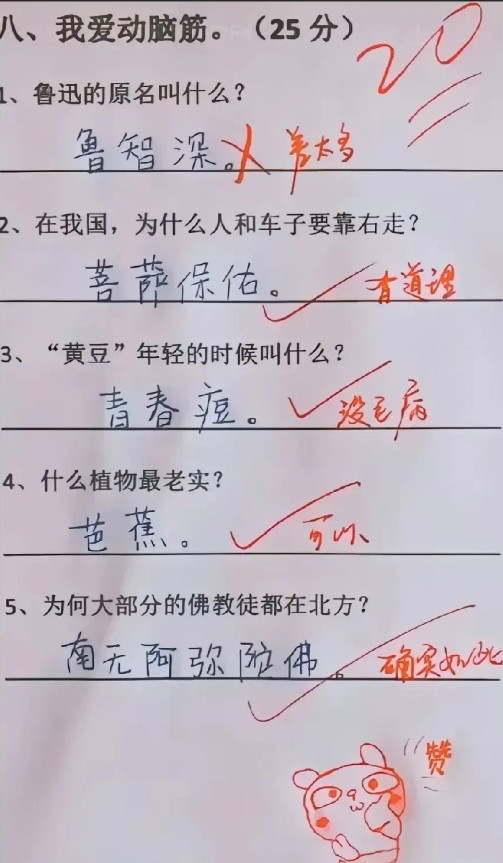 八、我爱动脑筋。（25 分）
20
1、鲁迅的原名叫什么？
鲁智深。 差太多
2、在我国，为什么人和车子要靠右走？
菩萨保佑。 有道理
3、“黄豆”年轻的时候叫什么？
青春痘。 没毛病
4、什么植物最老实？
芭蕉。 可以
5、为何大部分的佛教徒都在北方？
南无阿弥陀佛。 确实如此
赞